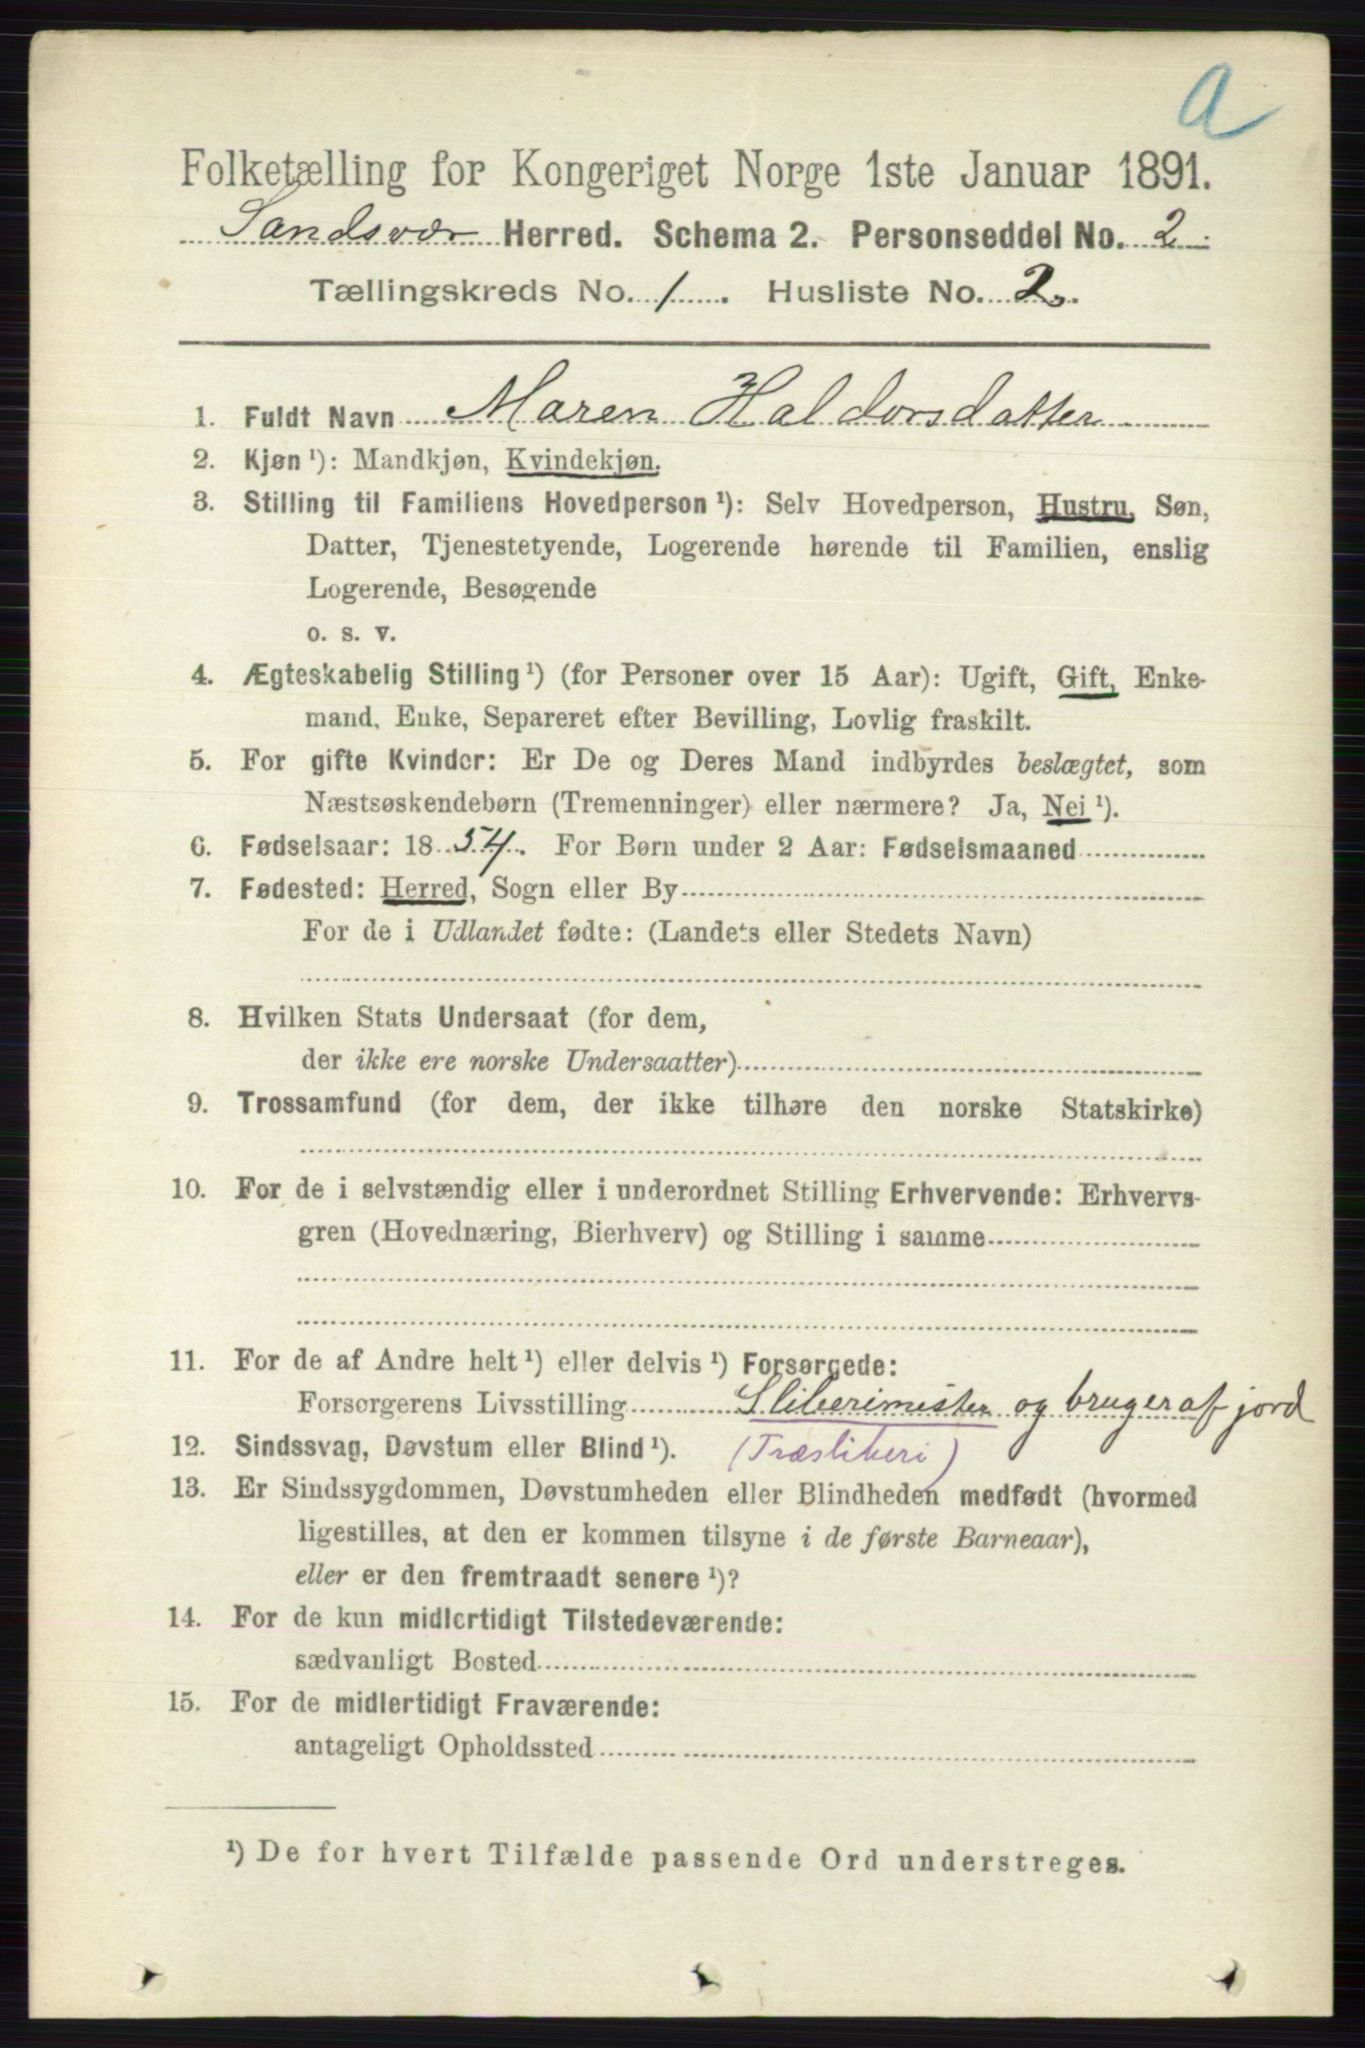 a
Folketælling for Kongeriget Norge 1ste Januar 1891.
Sandsvær Herred. Schema 2. Personseddel No. 2
Tællingskreds No. 1. Husliste No. 2.
1. Fuldt Navn Maren Haldorsdatter
2. Kjøn ¹): Mandkjøn, Kvindekjøn.
3. Stilling til Familiens Hovedperson ¹): Selv Hovedperson, Hustru, Søn,
Datter, Tjenestetyende, Logerende hørende til Familien, enslig
Logerende, Besøgende
o. s. v.
4. Ægteskabelig Stilling ¹) (for Personer over 15 Aar): Ugift, Gift, Enke-
mand, Enke, Separeret efter Bevilling, Lovlig fraskilt.
5. For gifte Kvinder: Er De og Deres Mand indbyrdes beslægtet, som
Næstsøskendebørn (Tremenninger) eller nærmere? Ja, Nei ¹).
6. Fødselsaar: 1854. For Børn under 2 Aar: Fødselsmaaned
7. Fødested: Herred, Sogn eller By
For de i Udlandet fødte: (Landets eller Stedets Navn)
8. Hvilken Stats Undersaat (for dem,
der ikke ere norske Undersaatter)
9. Trossamfund (for dem, der ikke tilhøre den norske Statskirke)
10. For de i selvstændig eller i underordnet Stilling Erhvervende: Erhvervs-
gren (Hovednæring, Bierhverv) og Stilling i samme
11. For de af Andre helt ¹) eller delvis ¹) Forsørgede:
Forsørgerens Livsstilling Sliberimester og bruger af jord
12. Sindssvag, Døvstum eller Blind ¹). (Træsliberi)
13. Er Sindssygdommen, Døvstumheden eller Blindheden medfødt (hvormed
ligestilles, at den er kommen tilsyne i de første Barneaar),
eller er den fremtraadt senere ¹)?
14. For de kun midlertidigt Tilstedeværende:
sædvanligt Bosted
15. For de midlertidigt Fraværende:
antageligt Opholdssted
¹) De for hvert Tilfælde passende Ord understreges.